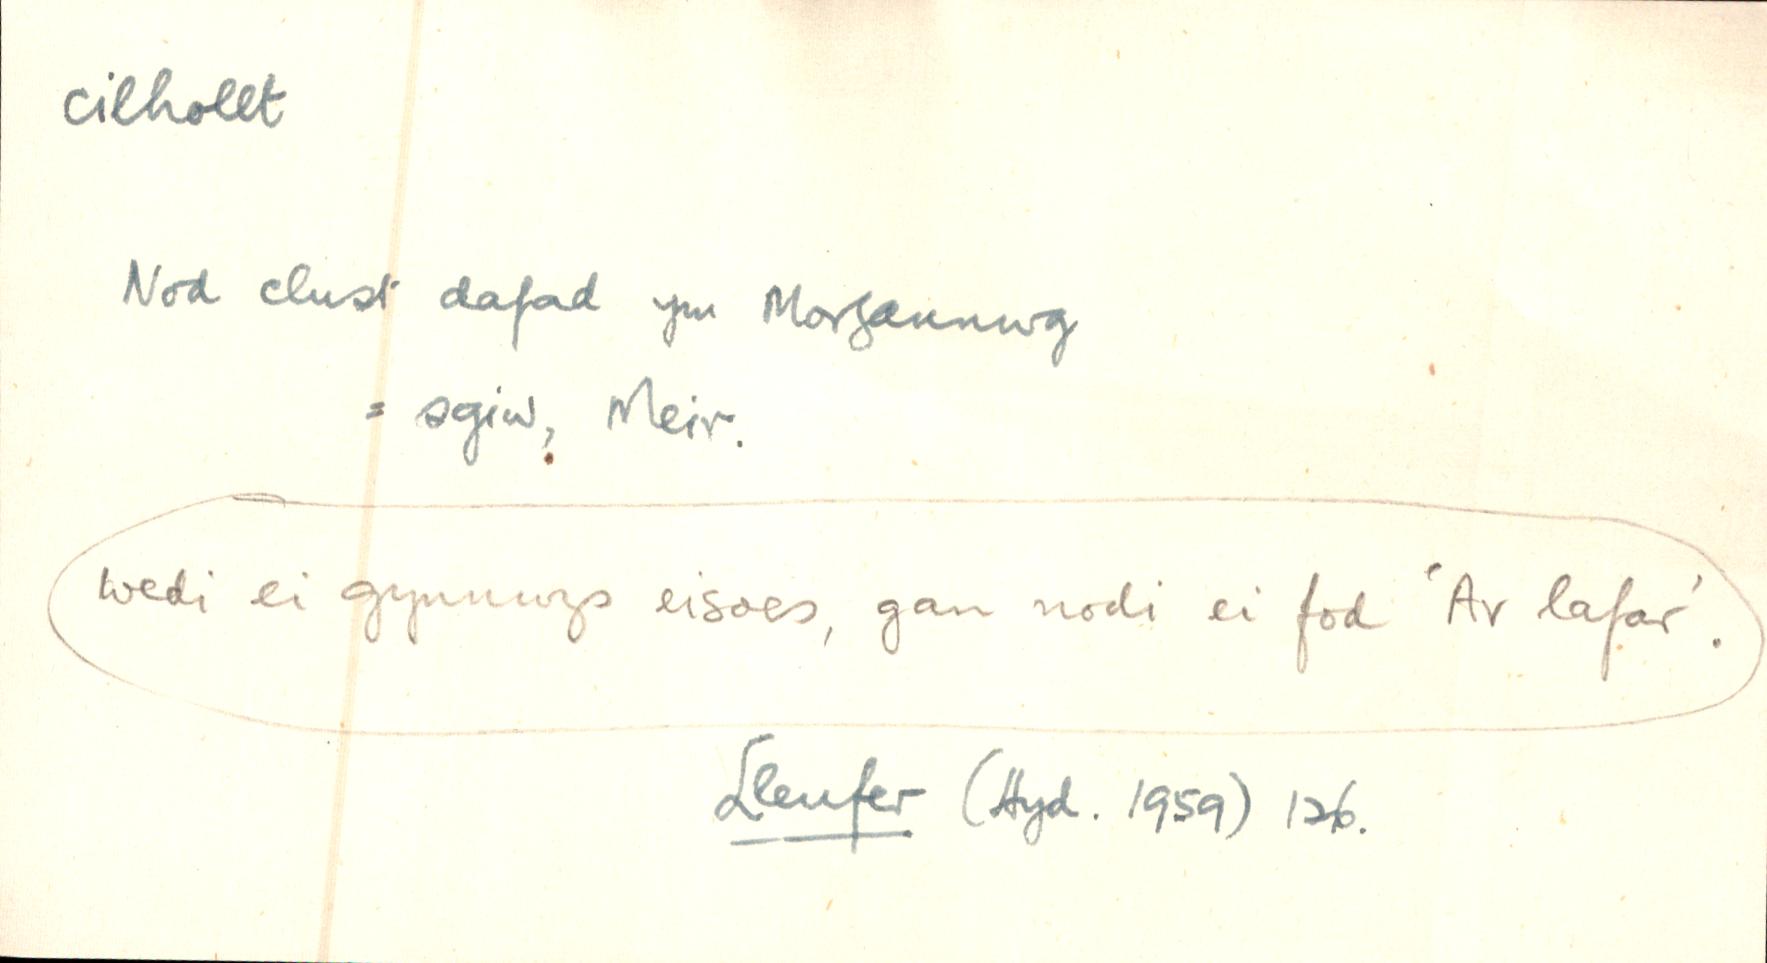 cilhollt
Nod clust dafad ym Morgannwg
= sgiw, Meir.
wedi ei gynnwys eisoes, gan nodi ei fod 'Ar lafar'.
Lleufer (Hyd. 1959) 126.